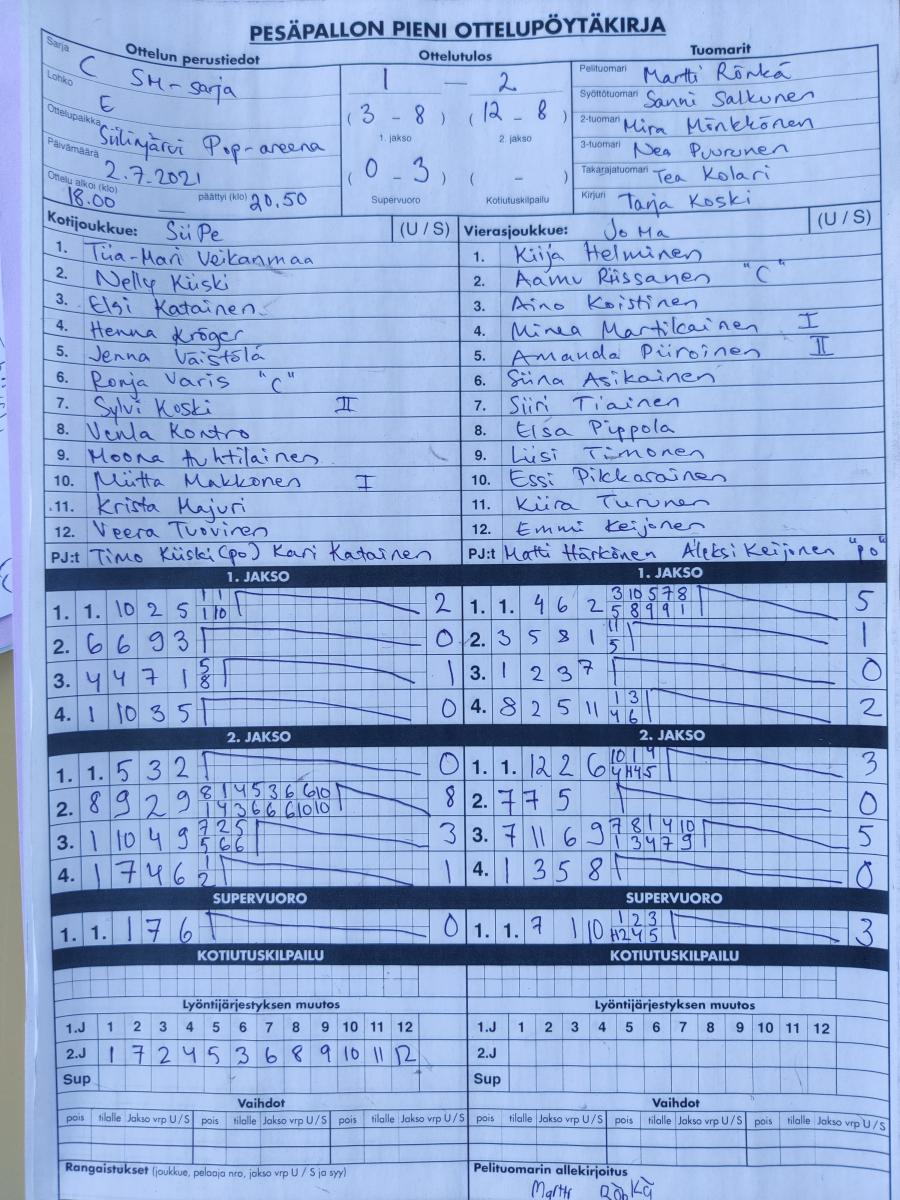 PESÄPALLON PIENI OTTELUPÖYTÄKIRJA
Ottelun perustiedot
Sarja C SM-sarja
Lohko E
Ottelupaikka Siilinjärvi Pop-areena
Päivämäärä 2.7.2021
Ottelu alkoi (klo) 18.00 päättyi (klo) 20.50
Ottelutulos
1 — 2
(3 - 8) (12 - 8)
1. jakso 2. jakso
(0 - 3) ( - )
Supervuoro Kotiutuskilpailu
Tuomarit
Pelituomari Martti Rönkä
Syöttötuomari Sanni Salkunen
2-tuomari Mira Mönkkönen
3-tuomari Nea Puurunen
Takarajatuomari Tea Kolari
Kirjuri Tarja Koski
Kotijoukkue: SiiPe (U / S)
1. Tiia-Mari Veikanmaa
2. Nelly Kiiski
3. Elsi Katainen
4. Henna Kröger
5. Jenna Väistölä
6. Ronja Varis "C"
7. Sylvi Koski II
8. Venla Kontro
9. Moona Huhtilainen
10. Miitta Makkonen I
11. Krista Majuri
12. Veera Tuovinen
PJ:t Timo Kiiski (po) Kari Katainen
Vierasjoukkue: JoMa (U / S)
1. Kiija Helminen
2. Aamu Riissanen "C"
3. Aino Koistinen
4. Minea Martikainen I
5. Amanda Piiroinen II
6. Siina Asikainen
7. Siiri Tiainen
8. Elsa Pippola
9. Liisi Timonen
10. Essi Pikkarainen
11. Kiira Turunen
12. Emmi Keijonen
PJ:t Matti Härkönen Aleksi Keijonen "po"
1. JAKSO
1. 1. 10 2 5 1 1 2
1 10
2. 6 6 9 3 0
3. 4 4 7 1 5 1
8
4. 1 10 3 5 0
2. JAKSO
1. 1. 5 3 2 0
2. 8 9 2 9 8 1 4 5 3 6 6 10 8
1 4 3 6 6 6 10 10
3. 1 10 4 9 7 2 5 3
5 6 6
4. 1 7 4 6 1 1
2
SUPERVUORO
1. 1. 1 7 6 0
KOTIUTUSKILPAILU
1. JAKSO
1. 1. 4 6 2 3 10 5 7 8 5
5 8 9 9 1
2. 3 5 8 1 11 1
5
3. 1 2 3 7 0
4. 8 2 5 11 1 3 2
4 6
2. JAKSO
1. 1. 12 2 6 10 1 4 3
4 4 5
2. 7 7 5 0
3. 7 11 6 9 7 8 1 4 10 5
1 3 4 7 9
4. 1 3 5 8 0
SUPERVUORO
1. 1. 7 1 10 1 2 3 3
2 4 5
KOTIUTUSKILPAILU
Lyöntijärjestyksen muutos
1.J 1 2 3 4 5 6 7 8 9 10 11 12
2.J 1 7 2 4 5 3 6 8 9 10 11 12
Sup
Vaihdot
pois tilalle Jakso vrp U / S pois tilalle Jakso vrp U / S pois tilalle Jakso vrp U / S
Rangaistukset (joukkue, pelaaja nro, jakso vrp U / S ja syy)
Lyöntijärjestyksen muutos
1.J 1 2 3 4 5 6 7 8 9 10 11 12
2.J
Sup
Vaihdot
pois tilalle Jakso vrp U / S pois tilalle Jakso vrp U / S pois tilalle Jakso vrp U / S
Pelituomarin allekirjoitus
Martti Rönkä